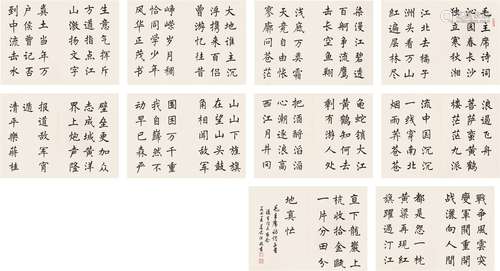 毛主席诗词
沁园春长沙
独立寒秋湘
江北去橘子
洲头看万山
红遍层林尽
染漫江碧透
百舸争流鹰
击长空鱼翔
浅底万类霜
天竞自由怅
寥廓问苍茫
大地谁主沉
浮携来百侣
曾游忆往昔
峥嵘岁月稠
恰同学少年
风华正茂书
生意气挥斥
方遒指点江
山激扬文字
粪土当年万
户侯曾记否
到中流击水
浪遏飞舟
菩萨蛮黄鹤
楼茫茫九派
流中国沉沉
一线穿南北
烟雨莽苍苍
龟蛇锁大江
黄鹤知何去
剩有游人处
把酒酹滔滔
心潮逐浪高
西江月井冈
山山下旌旗
在望山头鼓
角相闻敌军
围困万千重
我自岿然不
动早已森严
壁垒更加众
志成城黄洋
界上炮声隆
报道敌军宵
遁
清平乐蒋桂
战争风云突
变军阀重开
战洒向人间
都是怨一枕
黄粱再现红
旗跃过汀江
直下龙岩上
杭收拾金瓯
一片分田分
地真忙